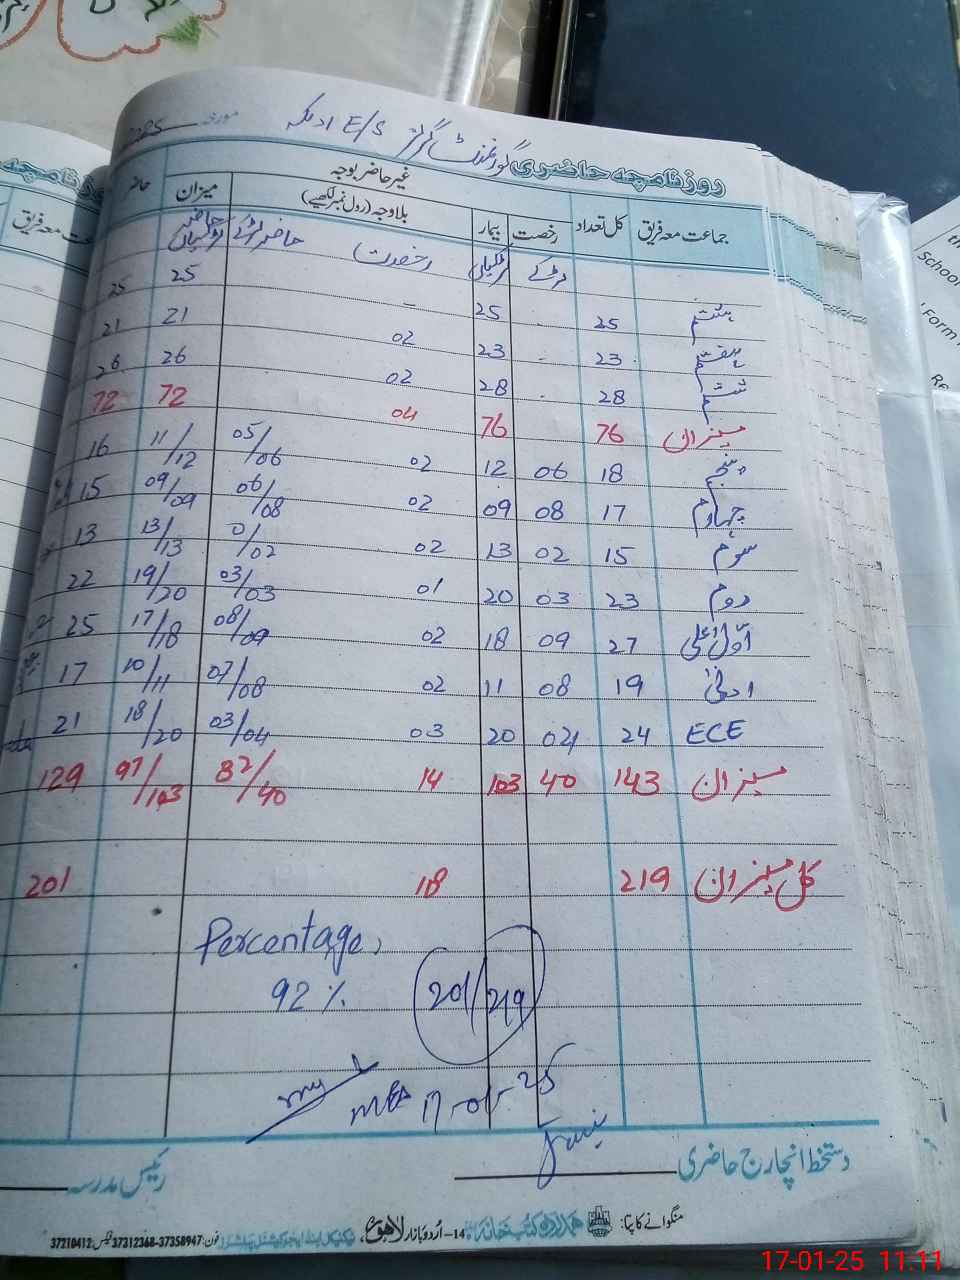 گورنمنٹ گرلز E/S
روزنامچہ حاضری
مورخہ
جماعت معہ فریق کل تعداد رخصت بیمار بلاوجہ (رول نمبر لکھیے) میزان حاضر
غیر حاضر بوجہ
لڑکے لڑکیاں رخصت حاضر لڑکے حاضر لڑکیاں
ہشتم 25 . 25 - 25 25
ہفتم 23 . 23 02 21 21
ششم 28 . 28 02 26 26
میزان 76 76 04 72 72
پنجم 18 06 12 02 05/06 11/12 16
چہارم 17 08 09 02 06/08 09/09 15
سوم 15 02 13 02 0/02 13/13 13
دوم 23 03 20 01 03/03 19/20 22
اول اعلیٰ 27 09 18 02 08/09 17/18 25
ادنیٰ 19 08 11 02 07/08 10/11 17
ECE 24 04 20 03 03/04 18/20 21
میزان 143 40 103 14 32/40 97/103 129
کل میزان 219 18 201
Percentage,
92 % 201/219
MEA 17-01-25
دستخط انچارج حاضری رئیس مدرسہ
منگوانے کا پتا: ہمدرد کتب خانہ 14-اُردو بازار لاہور، فون: 37358947-37312368 فیکس: 37210412
معہ فریق
School
Form
Re
17-01-25 11.11